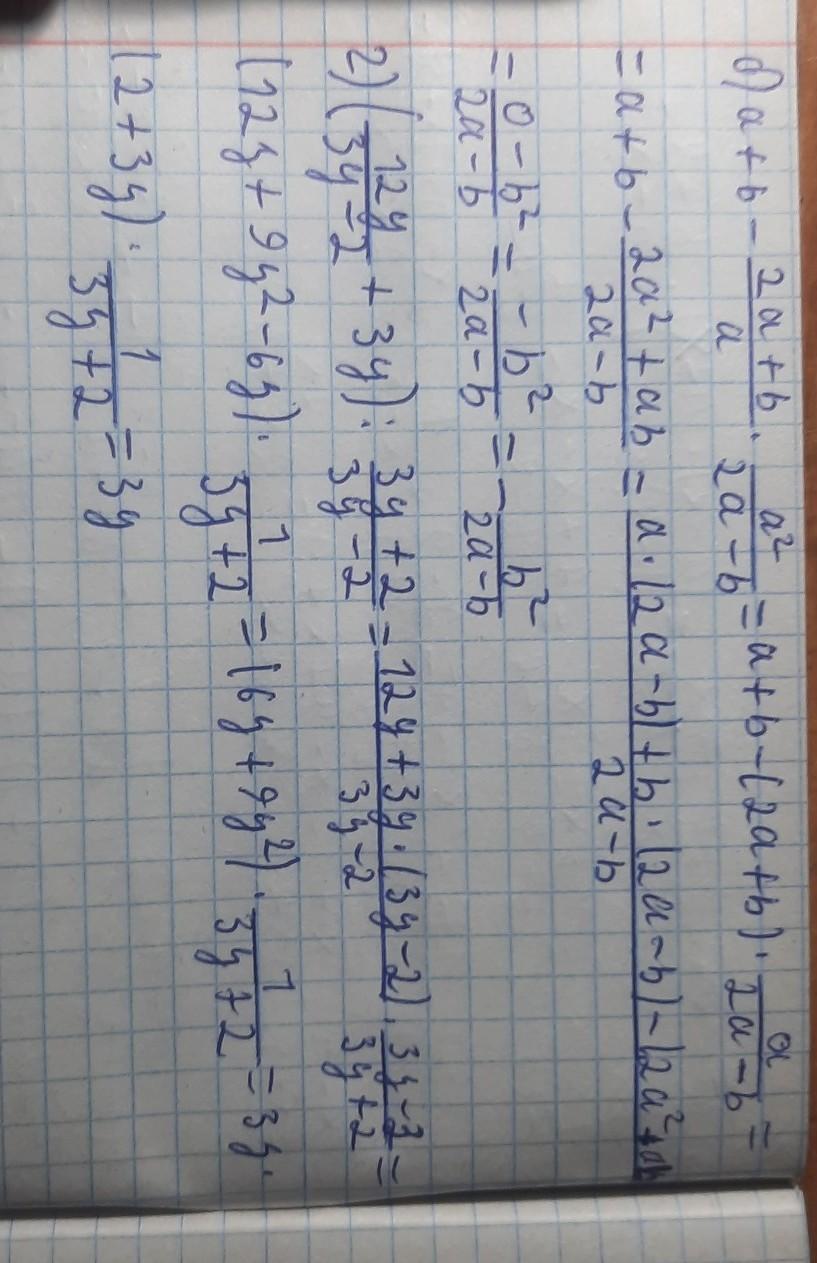 б) a + b - \frac{2a+b}{a} \cdot \frac{a^2}{2a-b} = a + b - (2a+b) \cdot \frac{a}{2a-b} =
= a + b - \frac{2a^2+ab}{2a-b} = \frac{a \cdot (2a-b) + b \cdot (2a-b) - (2a^2+ab}{2a-b}
= \frac{0-b^2}{2a-b} = \frac{-b^2}{2a-b} = - \frac{b^2}{2a-b}
2) (\frac{12y}{3y-2} + 3y) : \frac{3y+2}{3y-2} = \frac{12y+3y \cdot (3y-2)}{3y-2} \cdot \frac{3y-2}{3y+2} =
(12y + 9y^2 - 6y) \cdot \frac{1}{3y+2} = (6y + 9y^2) \cdot \frac{1}{3y+2} = 3y \cdot
(2 + 3y) \cdot \frac{1}{3y+2} = 3y